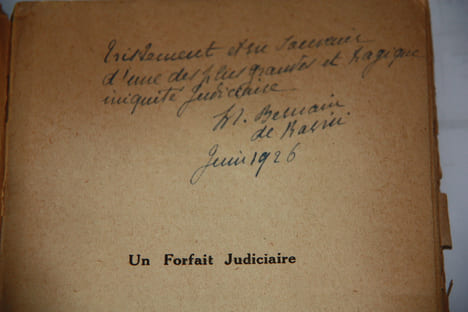 Tristement et en Souvenir
d'une des plus grandes et tragique
iniquité Judiciaire
de
Juin 1926
Un Forfait Judiciaire